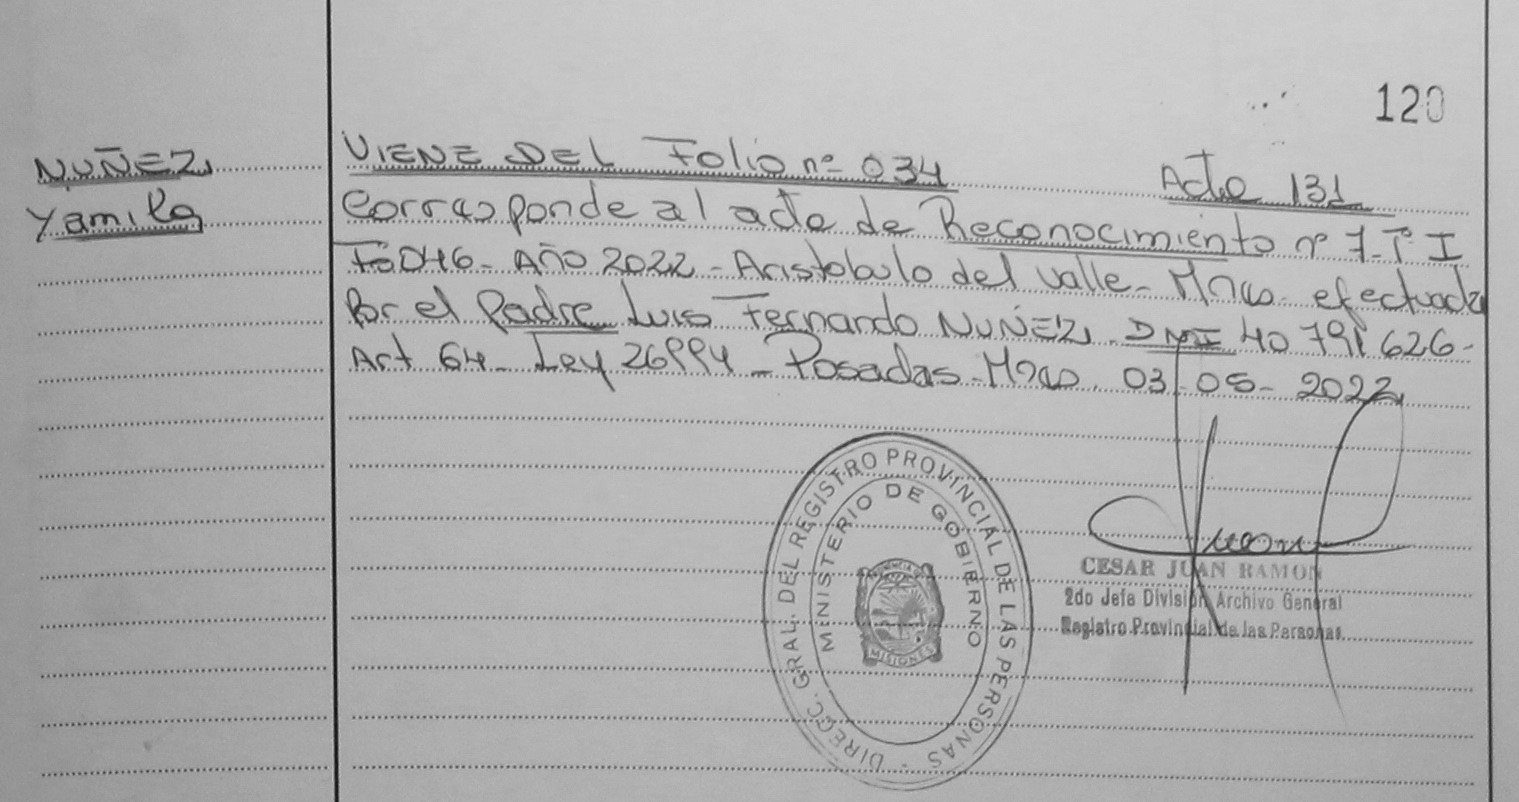 120
NUÑEZ,
Yamila
VIENE DEL Folio nº 034 Acta 131
Corresponde al acta de Reconocimiento nº 7-Tº I
Fº 046- Año 2022 - Aristobulo del Valle- Mnes- efectuada
Por el Padre Luis Fernando NUÑEZ, DNI 40 791 626-
Art 64- Ley 26994 - Posadas- Mnes, 03-05-2022
DIRECC. GRAL. DEL REGISTRO PROVINCIAL DE LAS PERSONAS -
MINISTERIO DE GOBIERNO
PROVINCIA DE
MISIONES
CESAR JUAN RAMON
2do Jefe División Archivo General
Registro Provincial de las Personas